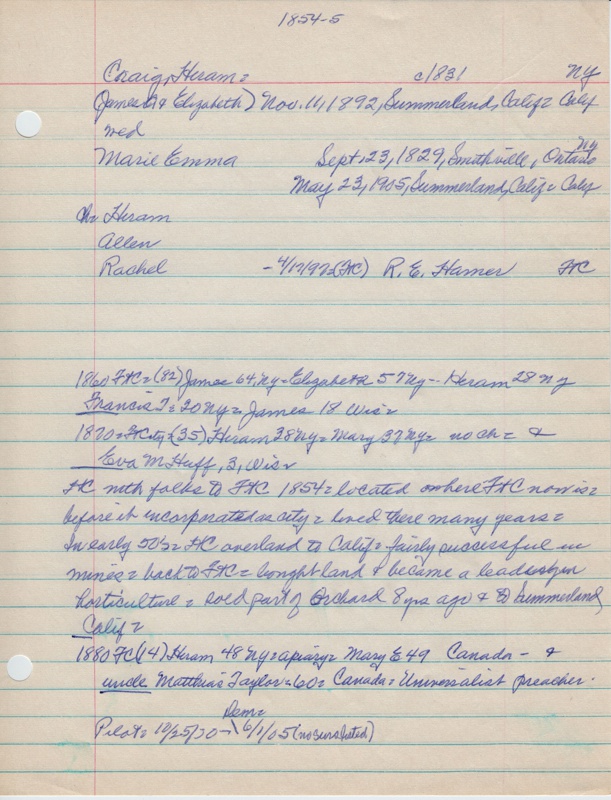 1854-5
Craig, Hiram = c1831 NY
(James & Elizabeth) Nov. 11, 1892, Summerland, Calif = Calif
wed
Marie Emma Sept. 23, 1829, Smithville, Ontario NY
May 23, 1905, Summerland, Calif = Calif
ch = Hiram
Allen
Rachel - 4/17/97= (FtC) R. E. Hamer FtC
1860 FtC = (82) James 64, NY = Elizabeth 57 NY - Hiram 28 NY
Francis T = 20 NY = James 18 Wis =
1870 = FtCity = (35) Hiram 38 NY = Mary 37 NY = no ch = &
Eva M Huff, 3, Wis =
FtC with folks to FtC 1854 = located where FtC now is =
before it incorporated as city = lived there many years =
In early 50's = FtC overland to Calif = fairly successful in
mines = back to FtC = bought land & became a leader in
horticulture = sold part of orchard 8 yrs ago & to Summerland,
Calif =
1880 FC (14) Hiram 48 NY = apiary = Mary E 49 Canada - &
uncle Matthias Taylor = 60 = Canada = Universalist preacher.
Dem =
Pilot = 10/25/70 - 6/1/05 (no surs listed)